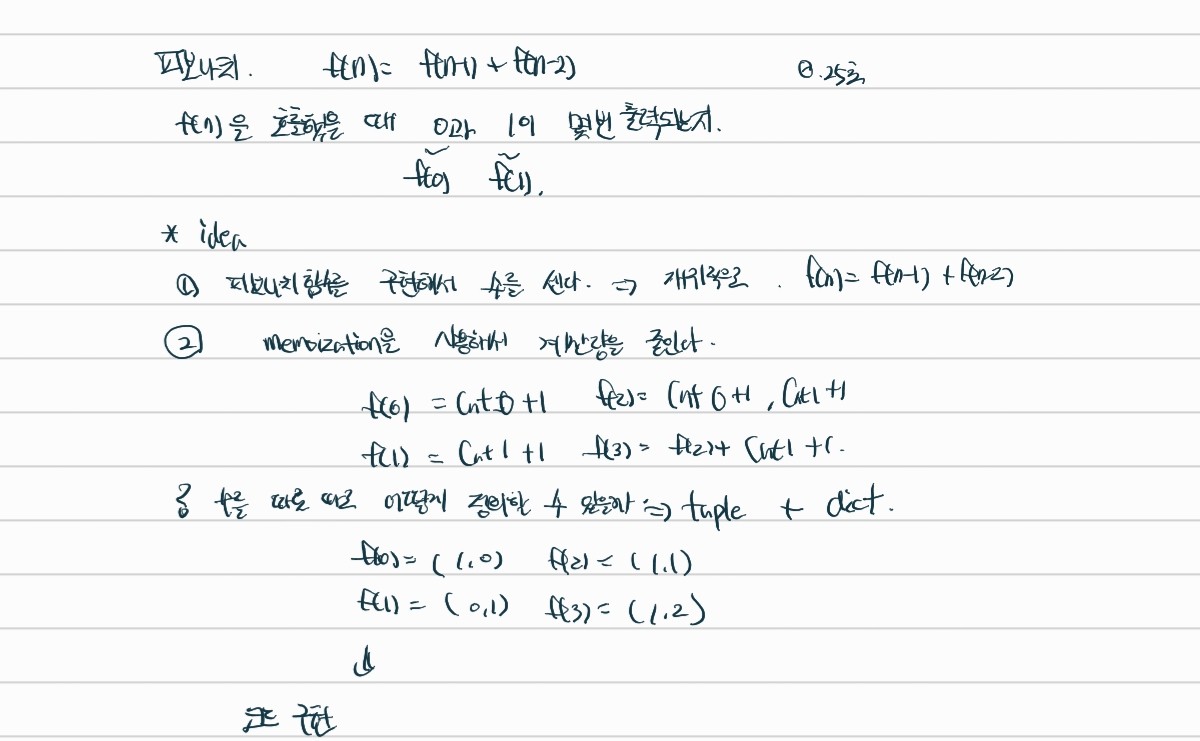 피보나치. f(n) = f(n-1) + f(n-2) 0.25초
f(n)을 호출했을 때 0과 1이 몇번 출력되는지.
f(0) f(1).
* idea
① 피보나치 함수를 구현해서 수를 센다. ⇒ 재귀적으로. f(n) = f(n-1) + f(n-2)
② memoization을 사용해서 계산량을 줄인다.
f(0) = Cnt0 + 1 f(2) = Cnt0+1, Cnt1+1
f(1) = Cnt1 + 1 f(3) = f(2) + Cnt1 + 1.
두 수를 따로 따로 어떻게 정의할 수 있을까 ⇒ tuple + dict.
f(0) = (1,0) f(2) = (1,1)
f(1) = (0,1) f(3) = (1,2)
↓
코드 구현